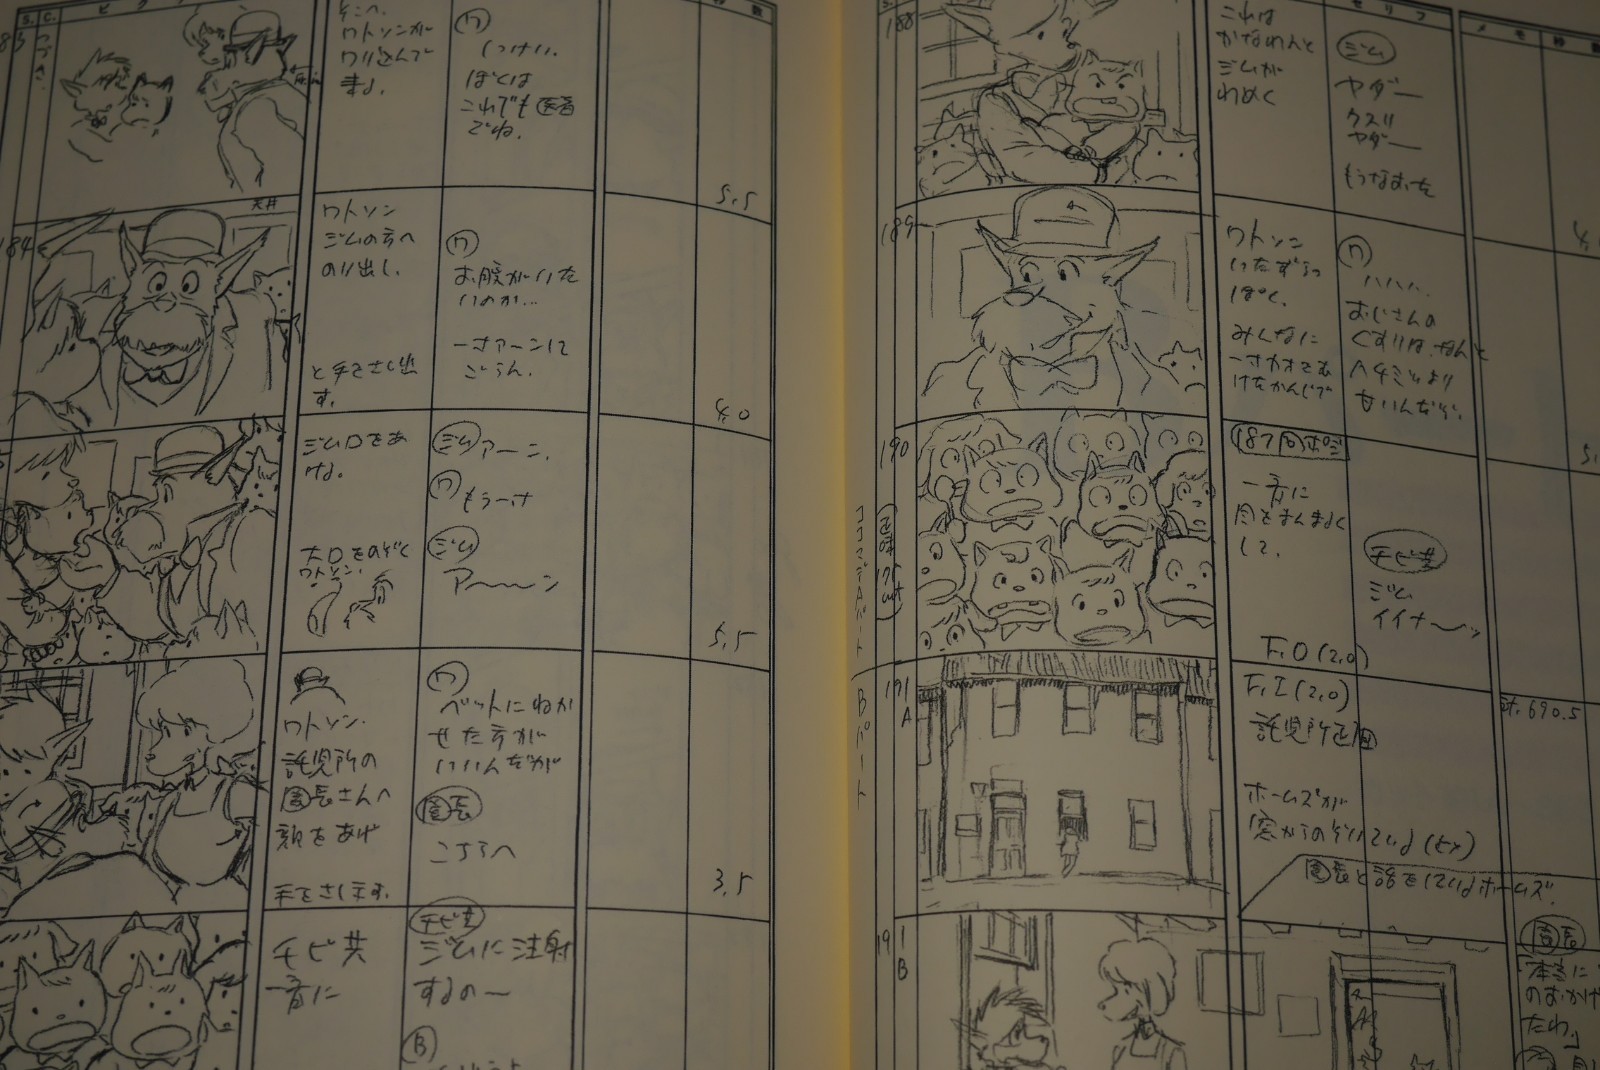 S. C. ピク
183
つづき
そこへ、
ワトソンが
ワリ込んで
ます。
ワ
いけない、
ぼくは
これでも医者
でね。
5,5
184
天井
ワトソン
ジムの方へ
のり出し、
と手をさし出
す。
ワ
お腹がいた
いのか…
一寸アーンして
ごらん。
4,0
ジム口をあ
ける。
大口をのぞく
ワトソン、
ジム
アーン、
ワ
もう一寸
ジム
ア〜〜ン
5,5
ワトソン、
託児所の
園長さんへ
顔をあげ
手をさします。
ワ
ベットにねか
せた方が
いいんだが
園長
こちらへ
3,5
チビ共
一斉に
チビ共
ジムに注射
するの〜
B
S.
セリフ
メモ 秒数
188
これは
かなわんと
ジムが
わめく
ジム
ヤダー
クスリ
ヤダー
もうなおった
189
ワトソン
いたずらっ
ぽく、
みんなに
一寸カオをむ
けたかんじで
ワ
ハハハ、
おじさんの
くすりは、なんと
ハチミツより
甘いんだぞ。
190
187同ポジ
一斉に
目をまんまるく
して、
チビ共
ジム
イイナ〜ッ
F.O(2,0)
ココマデAパート
Bパート
191
A
F.I(2,0)
託児所正面
計.690.5
ホームズが
窓からのぞいている(セツ)
園長と話をしているホームズ。
191
B
園長
「本当に
のおかげ
たわ。」